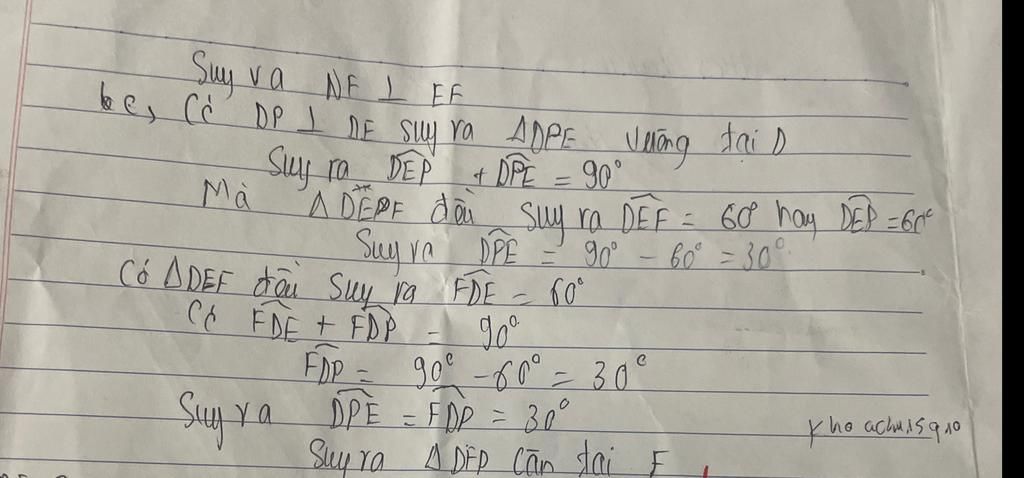 Suy ra NF ⊥ EF
c, Có DP ⊥ DE suy ra ΔDPE vuông tại D
Suy ra DEP + DPE = 90°
Mà ΔDEF đều suy ra DEF = 60° hay DEP = 60°
Suy ra DPE = 90° - 60° = 30°
Có ΔDEF đều suy ra FDE = 60°
Có FDE + FDP = 90°
FDP = 90° - 60° = 30°
Suy ra DPE = FDP = 30°
Suy ra ΔDFP cân tại F